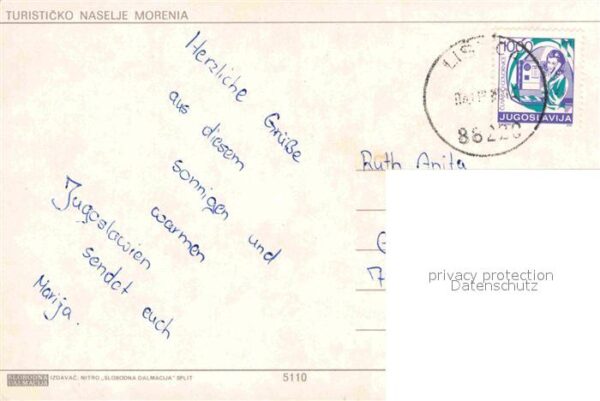 TURISTIČKO NASELJE MORENIA
Herzliche Grüße
aus diesem
sonnigen und
warmen
Jugoslawien
sendet euch
Marija.
1000
JUGOSLAVIJA
88220
Ruth Anita
privacy protection
Datenschutz
SLOBODNA
DALMACIJA
IZDAVAČ: NITRO „SLOBODNA DALMACIJA" SPLIT
5110